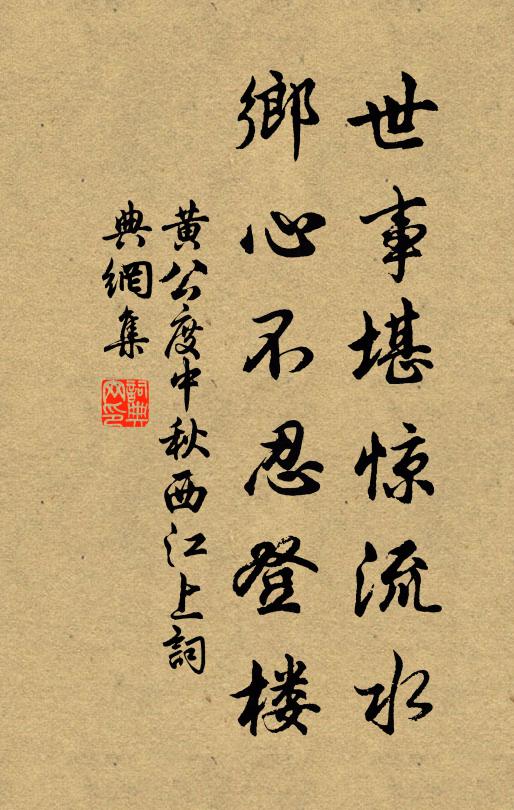 世事堪惊流水
鄉心不忍登楼
黄公度中秋西江上詞
典網集
詞典
网印